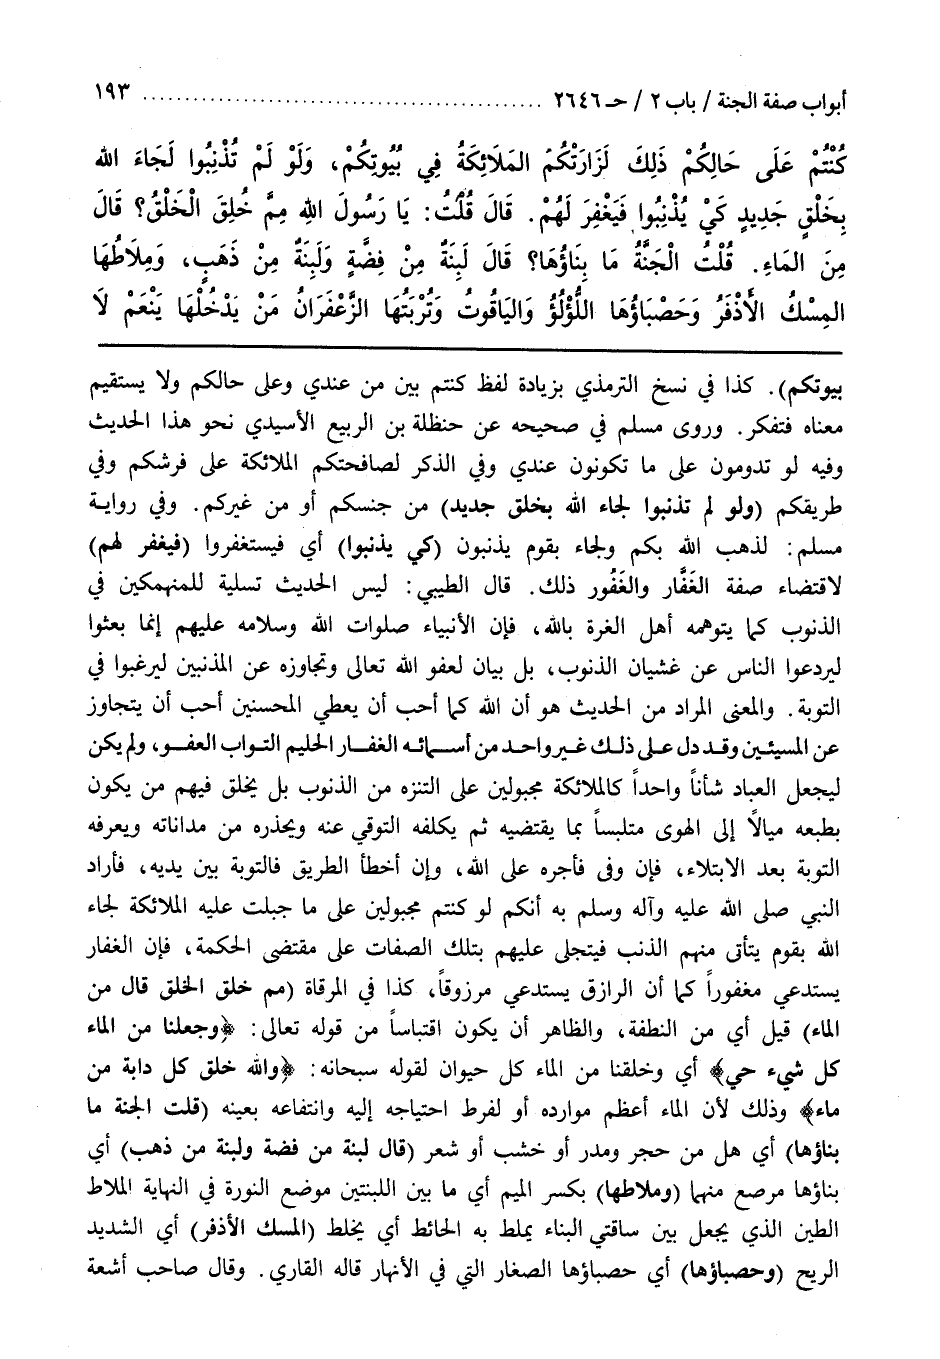 أبواب صفة الجنة / باب ٢ / حـ ٢٦٤٦ ............................................. ١٩٣
كُنْتُمْ عَلَى حَالِكُمْ ذَلِكَ لَزَارَتْكُمَ المَلَائِكَةُ فِي بُيُوتِكُمْ، وَلَوْ لَمْ تُذْنِبُوا لَجَاءَ الله
بِخَلْقٍ جَدِيدٍ كَيْ يُذْنِبُوا فَيَغْفِرَ لَهُمْ. قَالَ قُلْتُ: يَا رَسُولَ اللهِ مِمَّ خُلِقَ الْخَلْقُ؟ قَالَ
مِنَ المَاءِ. قُلْتُ الْجَنَّةُ مَا بِنَاؤُهَا؟ قَالَ لَبِنَةٌ مِنْ فِضَّةٍ وَلَبِنَةٌ مِنْ ذَهَبٍ، وَمِلَاطُهَا
المِسْكُ الأَذْفَرُ وَحَصْبَاؤُهَا اللُّؤْلُؤُ وَالْيَاقُوتُ وَتُرْبَتُهَا الزَّعْفَرَانُ مَنْ يَدْخُلْهَا يَنْعَمْ لَا
بيوتكم). كذا في نسخ الترمذي بزيادة لفظ كنتم بين من عندي وعلى حالكم ولا يستقيم
معناه فتفكر. وروى مسلم في صحيحه عن حنظلة بن الربيع الأسيدي نحو هذا الحديث
وفيه لو تدومون على ما تكونون عندي وفي الذكر لصافحتكم الملائكة على فرشكم وفي
طريقكم (ولو لم تذنبوا لجاء الله بخلق جديد) من جنسكم أو من غيركم. وفي رواية
مسلم: لذهب الله بكم ولجاء بقوم يذنبون (كي يذنبوا) أي فيستغفروا (فيغفر لهم)
لاقتضاء صفة الغَفَّار والغَفُور ذلك. قال الطيبي: ليس الحديث تسلية للمنهمكين في
الذنوب كما يتوهمه أهل الغرة بالله، فإن الأنبياء صلوات الله وسلامه عليهم إنما بعثوا
ليردعوا الناس عن غشيان الذنوب، بل بيان لعفو الله تعالى وتجاوزه عن المذنبين ليرغبوا في
التوبة. والمعنى المراد من الحديث هو أن الله كما أحب أن يعطي المحسنين أحب أن يتجاوز
عن المسيئين وقد دل على ذلك غير واحد من أسمائه الغفار الحليم التواب العفو، ولم يكن
ليجعل العباد شأناً واحداً كالملائكة مجبولين على التنزه من الذنوب بل يخلق فيهم من يكون
بطبعه ميالاً إلى الهوى متلبساً بما يقتضيه ثم يكلفه التوقي عنه ويحذره من مداناته ويعرفه
التوبة بعد الابتلاء، فإن وفى فأجره على الله، وإن أخطأ الطريق فالتوبة بين يديه، فأراد
النبي صلى الله عليه وآله وسلم به أنكم لو كنتم مجبولين على ما جبلت عليه الملائكة لجاء
الله بقوم يتأتى منهم الذنب فيتجلى عليهم بتلك الصفات على مقتضى الحكمة، فإن الغفار
يستدعي مغفوراً كما أن الرازق يستدعي مرزوقاً، كذا في المرقاة (مم خلق الخلق قال من
الماء) قيل أي من النطفة، والظاهر أن يكون اقتباساً من قوله تعالى: ﴿وجعلنا من الماء
كل شيء حي﴾ أي وخلقنا من الماء كل حيوان لقوله سبحانه: ﴿والله خلق كل دابة من
ماء﴾ وذلك لأن الماء أعظم موارده أو لفرط احتياجه إليه وانتفاعه بعينه (قلت الجنة ما
بناؤها) أي هل من حجر ومدر أو خشب أو شعر (قال لبنة من فضة ولبنة من ذهب) أي
بناؤها مرصع منها (وملاطها) بكسر الميم أي ما بين اللبنتين موضع النورة في النهاية الملاط
الطين الذي يجعل بين ساقتي البناء يملط به الحائط أي يخلط (المسك الأذفر) أي الشديد
الريح (وحصباؤها) أي حصباؤها الصغار التي في الأنهار قاله القاري. وقال صاحب أشعة